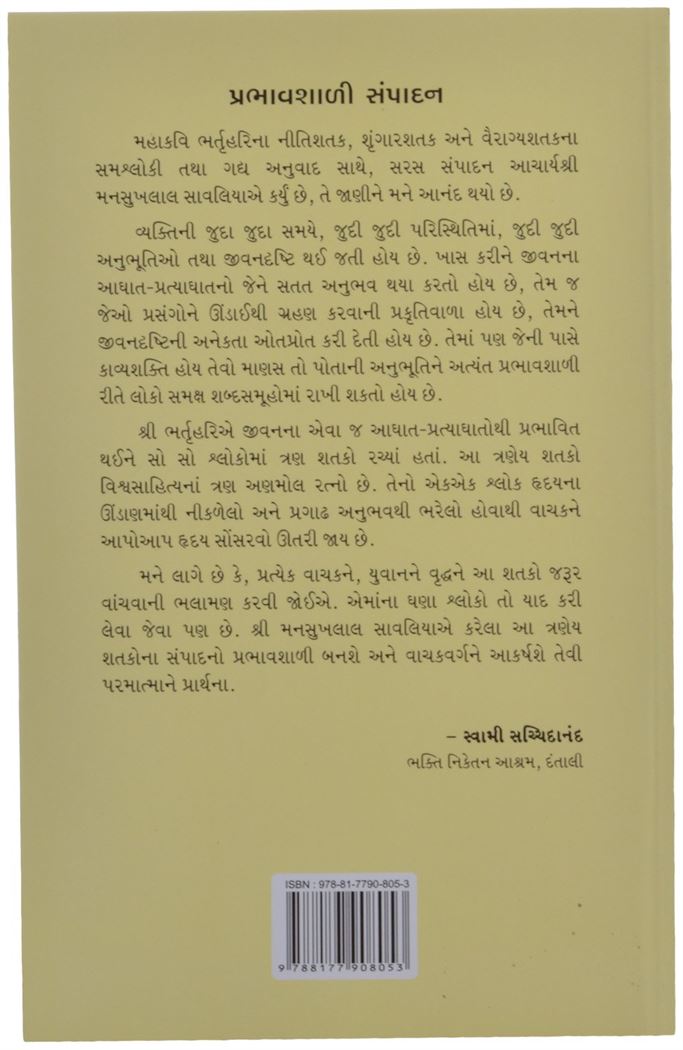 પ્રભાવશાળી સંપાદન
મહાકવિ ભર્તૃહરિના નીતિશતક, શૃંગારશતક અને વૈરાગ્યશતકના
સમશ્લોકી તથા ગદ્ય અનુવાદ સાથે, સરસ સંપાદન આચાર્યશ્રી
મનસુખલાલ સાવલિયાએ કર્યું છે, તે જાણીને મને આનંદ થયો છે.
વ્યક્તિની જુદા જુદા સમયે, જુદી જુદી પરિસ્થિતિમાં, જુદી જુદી
અનુભૂતિઓ તથા જીવનદૃષ્ટિ થઈ જતી હોય છે. ખાસ કરીને જીવનના
આઘાત-પ્રત્યાઘાતનો જેને સતત અનુભવ થયા કરતો હોય છે, તેમ જ
જેઓ પ્રસંગોને ઊંડાઈથી ગ્રહણ કરવાની પ્રકૃતિવાળા હોય છે, તેમને
જીવનદૃષ્ટિની અનેકતા ઓતપ્રોત કરી દેતી હોય છે. તેમાં પણ જેની પાસે
કાવ્યશક્તિ હોય તેવો માણસ તો પોતાની અનુભૂતિને અત્યંત પ્રભાવશાળી
રીતે લોકો સમક્ષ શબ્દસમૂહોમાં રાખી શકતો હોય છે.
શ્રી ભર્તૃહરિએ જીવનના એવા જ આઘાત-પ્રત્યાઘાતોથી પ્રભાવિત
થઈને સો સો શ્લોકોમાં ત્રણ શતકો રચ્યાં હતાં. આ ત્રણેય શતકો
વિશ્વસાહિત્યનાં ત્રણ અણમોલ રત્નો છે. તેનો એકએક શ્લોક હૃદયના
ઊંડાણમાંથી નીકળેલો અને પ્રગાઢ અનુભવથી ભરેલો હોવાથી વાચકને
આપોઆપ હૃદય સોંસરવો ઊતરી જાય છે.
મને લાગે છે કે, પ્રત્યેક વાચકને, યુવાનને વૃદ્ધને આ શતકો જરૂર
વાંચવાની ભલામણ કરવી જોઈએ. એમાંના ઘણા શ્લોકો તો યાદ કરી
લેવા જેવા પણ છે. શ્રી મનસુખલાલ સાવલિયાએ કરેલા આ ત્રણેય
શતકોના સંપાદનો પ્રભાવશાળી બનશે અને વાચકવર્ગને આકર્ષશે તેવી
પરમાત્માને પ્રાર્થના.
– સ્વામી સચ્ચિદાનંદ
ભક્તિ નિકેતન આશ્રમ, દંતાલી
ISBN : 978-81-7790-805-3
9 788177 908053